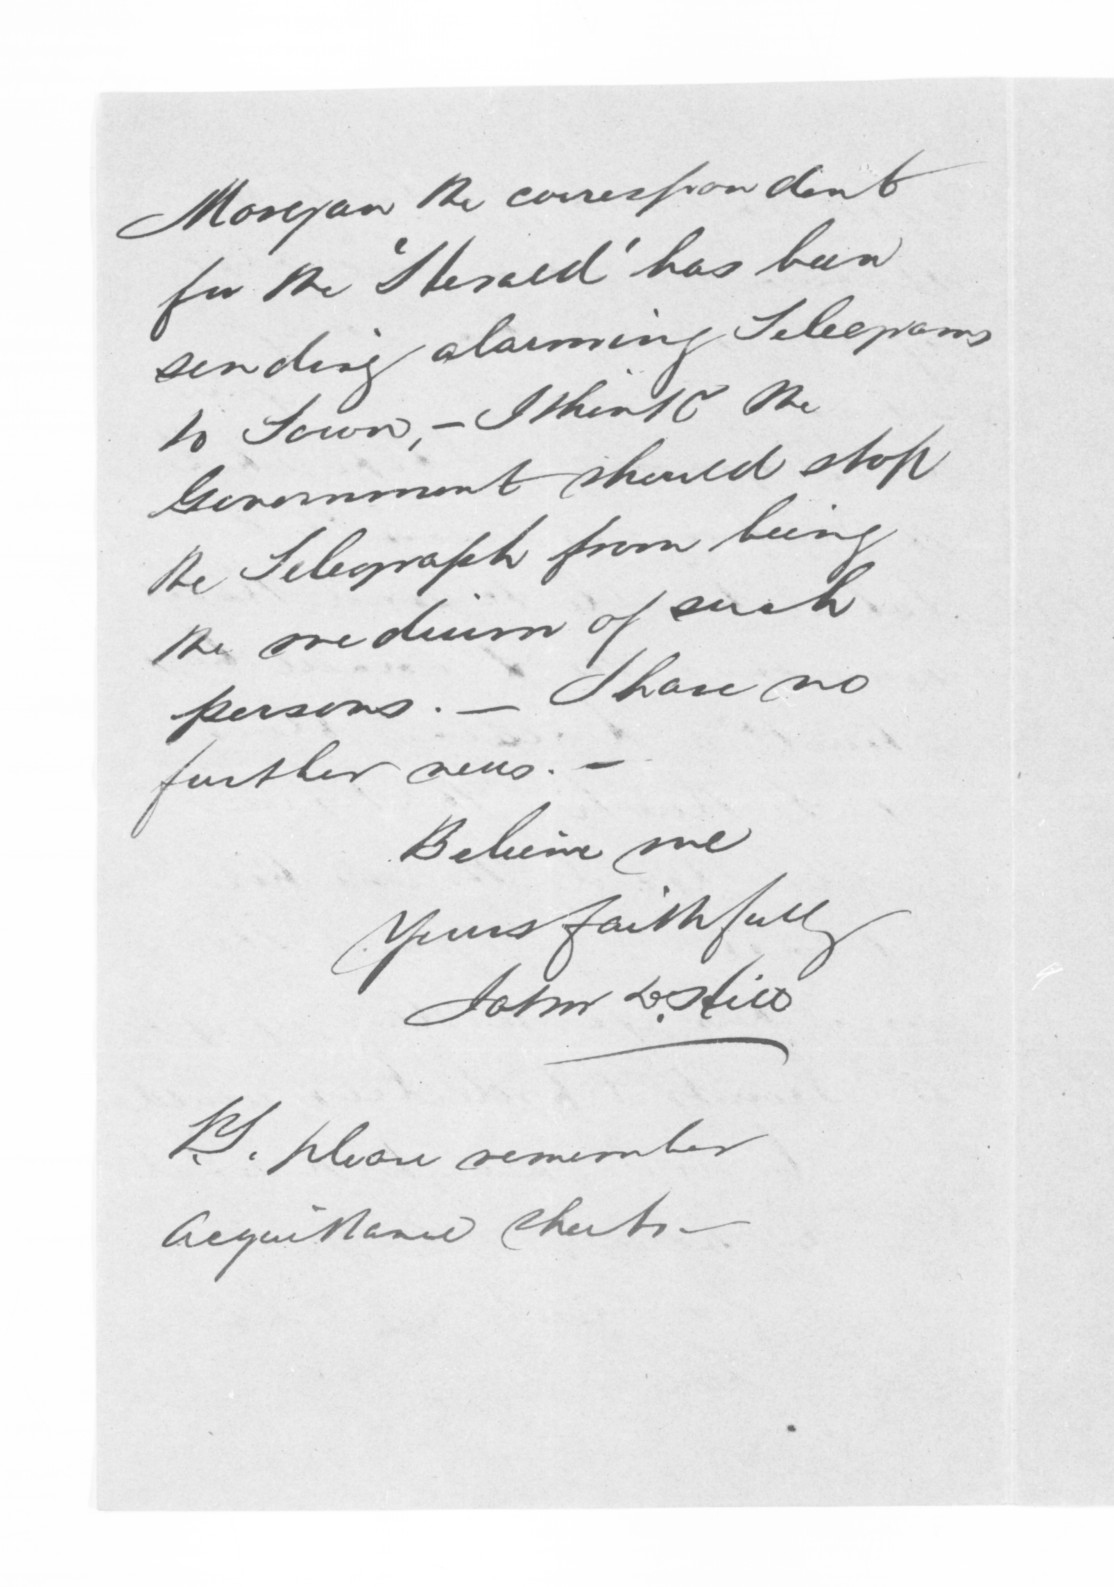 Morgan the correspondent
for the 'Herald' has been
sending alarming Telegrams
to Town, – I think the
Government should stop
the Telegraph from being
the medium of such
persons. – I have no
further news. –
Believe me
Yours faithfully
John
P.S. please remember
Acquittance sheets –